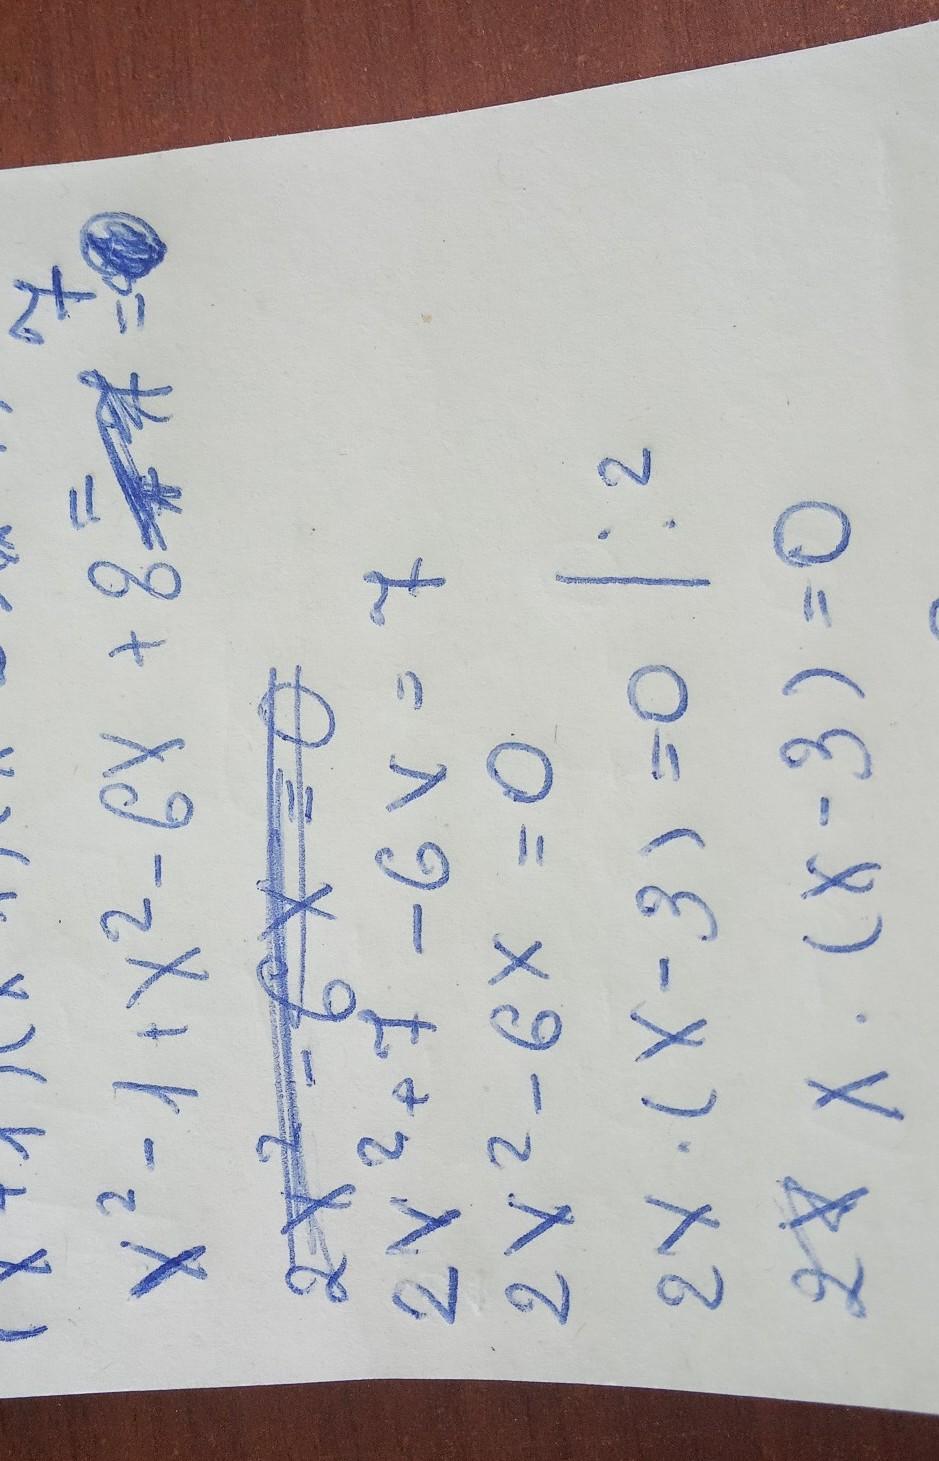 x² - 1 + x² - 6x + 8 = 7
2x² - 6x = 0
2x² + 7 - 6x = 7
2x² - 6x = 0
2x · (x - 3) = 0 | : 2
x · (x - 3) = 0